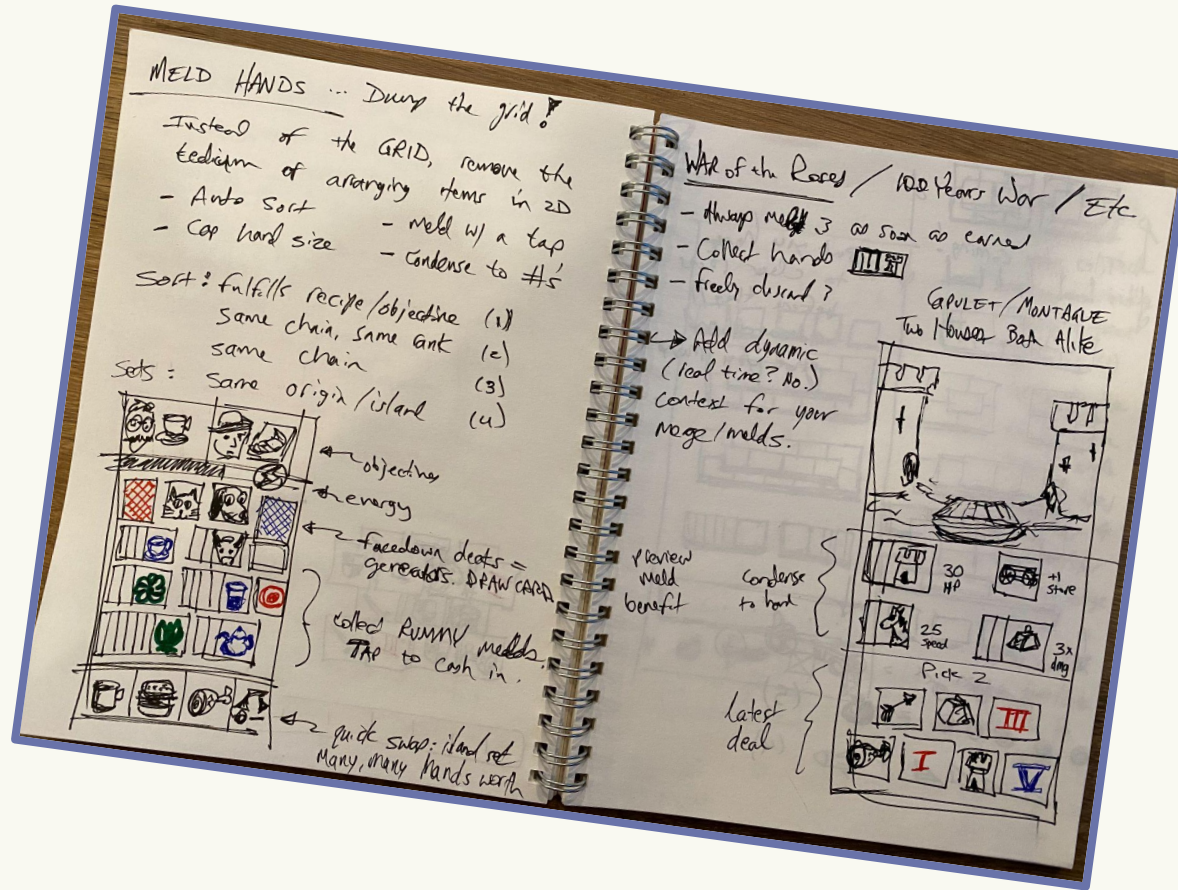 MELD HANDS ... Dump the grid!
Instead of the GRID, remove the
tedium of arranging items in 2D
- Auto Sort
- Cap hand size
- meld w/ a tap
- condense to #'s
Sort: fulfills recipe/objective (1)
same chain, same rank (2)
same chain (3)
Sets: same origin/island (4)
objectives
energy
facedown decks =
generators. DRAW CARD
collect RUMMY melds.
TAP to cash in.
quick swap: island set
Many, many hands worth
WAR of the Roses / 100 Years War / Etc
- Always meld 3 as soon as earned
- Collect hands
- Freely discard?
CAPULET/MONTAGUE
Two Houses Both Alike
Add dynamic
(real time? No.)
context for your
merge/melds.
preview
meld
benefit
condense
to hand
30
HP
+1
store
25
speed
3x
dmg
Pick 2
latest
deal
III
I
V